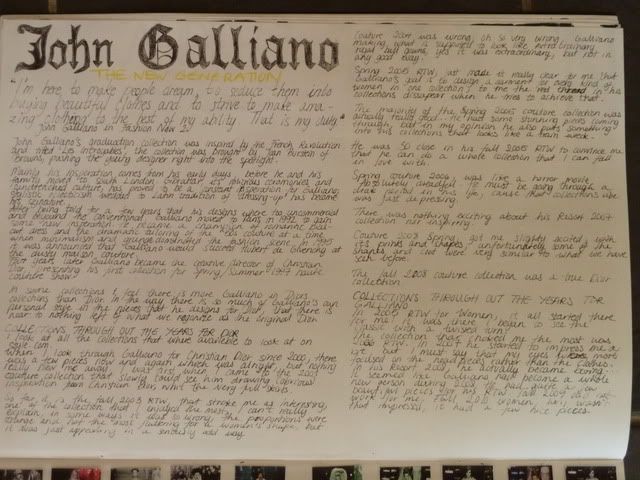 John Galliano
THE NEW GENERATION
"I'm here to make people dream, to seduce them into
buying beautiful clothes and to strive to make ama-
zing clothes to the best of my ability. That is my duty"
John Galliano in Fashion Now 2
John Galliano's graduation collection was inspired by the French Revolution
and titled "Les Incroyables", the collection was bought by Joan Burstein of
Browns, pushing the young designer right into the spotlight.
Mainly his inspiration comes from his early days, before he and his
family moved to South London Gibraltar
culture, has proved to be a constant inspiration to Galliano,
has become
his signature.
After being for a few years that his designs where to uncommercial
and beyond the conventional he moved to Paris in 1992 to gain
some new inspiration. He became a champion of romantic bias-
cut dresses and the dramatic tailoring of the 50s couture at a time
when minimalism and grunge dominated the fashion scene. In 1995
it was announced that Galliano would succeed Hubert de Givenchy at
the dusty maison couture
Two years later Galliano became the creative director of Christian
Dior, presenting his first collection for Spring/Summer 1997 haute
couture show.
In some collections I feel there is more Galliano in Dior's
collections than Dior. In the way there is so much of Galliano's own
personal style in the pieces that he designs for Dior, that there is
near to nothing left of what we recognize as the original Dior
COLLECTIONS THROUGH OUT THE YEARS FOR DIOR
I look at all the collections that where available to look at on
style.com
When I look through Galliano for Christian Dior since 2000, there
was a few pieces now and again which was alright, but nothing
really blew me away. I was not, when I came to the 2005
couture collection that slowly could see him drawing (obvious)
inspiration from Christian Dior with the very full skirts
So far it is the fall 2003 RTW, that struck me as interesting,
out of the collection that I enjoyed the most, I can't really
explain, in some ways it was so wrong, the proportions were
strange and not the most flattering for a women's shape, but
it was just appealing in a seriously odd way.
Couture 2004 was wrong, oh so very wrong, Galliano
making what is supposed to look like extraordinary
regal ball gowns, yes it was extraordinary, but not in
any good way.
Spring 2005 RTW, just made it really clear to me that
Galliano's aim is to design a garment for every kind of
women in one collection, to me the red thread in his
collections disappear when he tries to achieve that.
The majority of the Spring 2005 couture collection was
actually really good. He had some stunning pieces coming
through, but in my opinion, he also puts something
into his collections that looks like a train wreck.
He was so close in his fall 2005 RTW to convince me
that he can do a whole collection that I can fall
in love with.
Spring couture 2006, was like a horror movie.
Absolutely dreadful. He must be going through a
dark period in his life, cause that collections vibe
was just depressing.
There was nothing exciting about his Resort 2007
collection, or inspiring.
Couture 2008 Spring, got me slightly excited with
it's prints and shapes, unfortunately some of the
shapes and cut were very similar to what we have
seen before.
The fall 2008 couture collection was a true Dior
collection
COLLECTIONS THROUGH OUT THE YEARS FOR
GALLIANO
In 2005 RTW for Women, it all started there
for me. It was there I began to see the
"classic with a twisted twin"
The collection that shocked me the most was
2006 RTW. In 2007 he started to impress me a
lot, but I must say that my eyes were more
focused on the head(hats) rather than the clothes.
In his Resort 2009, he actually became boring.
It seemed like Galliano had become a whole
new person during 2009. He had quite a few
beautiful pieces but his RTW fall 2009 did not
work for me. Fall 2010 women, hm, wasn't
that impressed, it had a few nice pieces.